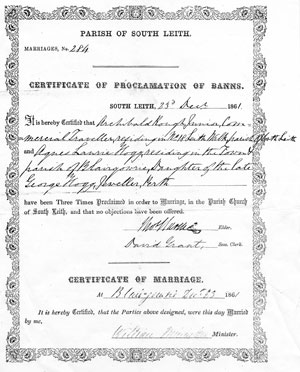 PARISH OF SOUTH LEITH.
MARRIAGES, No. 284
CERTIFICATE OF PROCLAMATION OF BANNS.
SOUTH LEITH, 23d Decr 1861.
It is hereby Certified that Archibald Junior, Com
mercial Traveller, residing in South Leith
and Agnes Hogg residing in the Town &
parish of Blairgowrie, Daughter of the late
George Hogg, Jeweller, Perth
have been Three Times Proclaimed in order to Marriage, in the Parish Church
of South Leith, and no objections have been offered.
Elder.
David Grant, Sess. Clerk.
CERTIFICATE OF MARRIAGE.
At Blairgowrie 23 1861
It is hereby Certified, that the Parties above designed, were this day Married
by me,
William Minister.